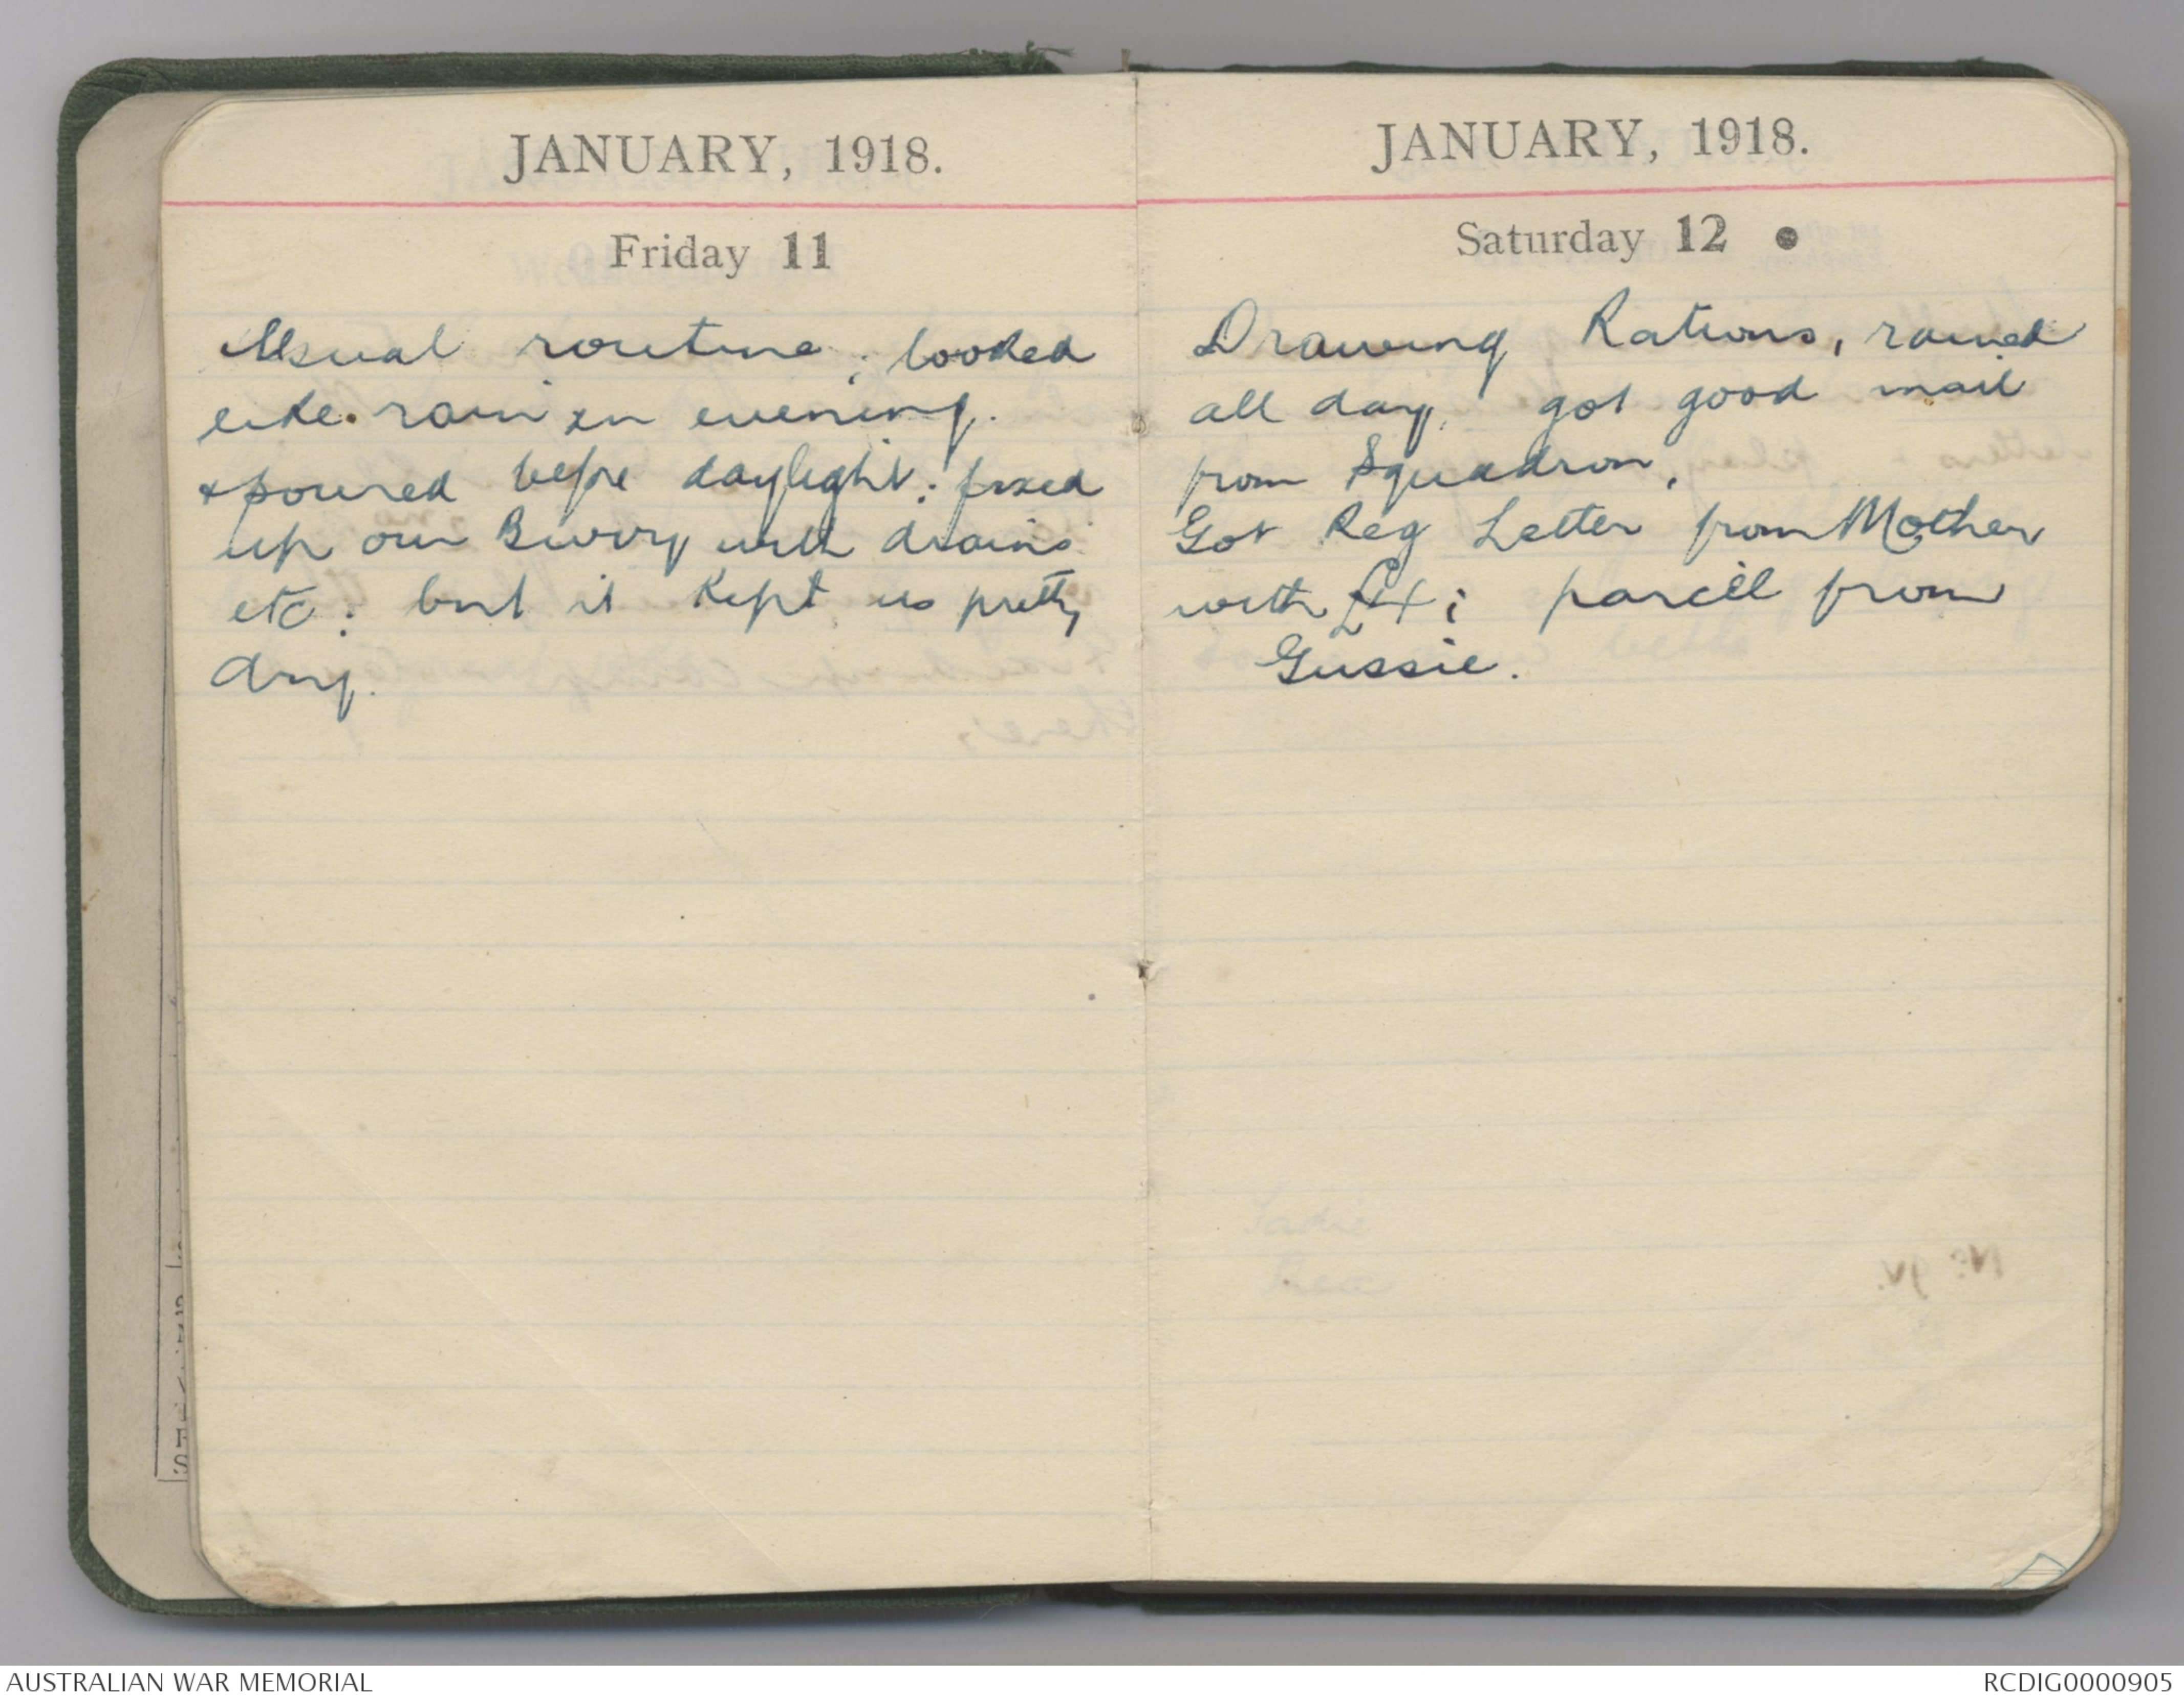 JANUARY, 1918.
Friday 11
Usual routine; looked
like rain in evening.
& poured befre daylight; fixed
up our Bivvy with drains
etc; but it kept us pretty
dry.
JANUARY, 1918.
Saturday 12
Drawing Rations, rained
all day, got good mail
from Squadron,
Got Reg Letter from Mother
with £4; parcell from
Gussie.
AUSTRALIAN WAR MEMORIAL
RCDIG0000905